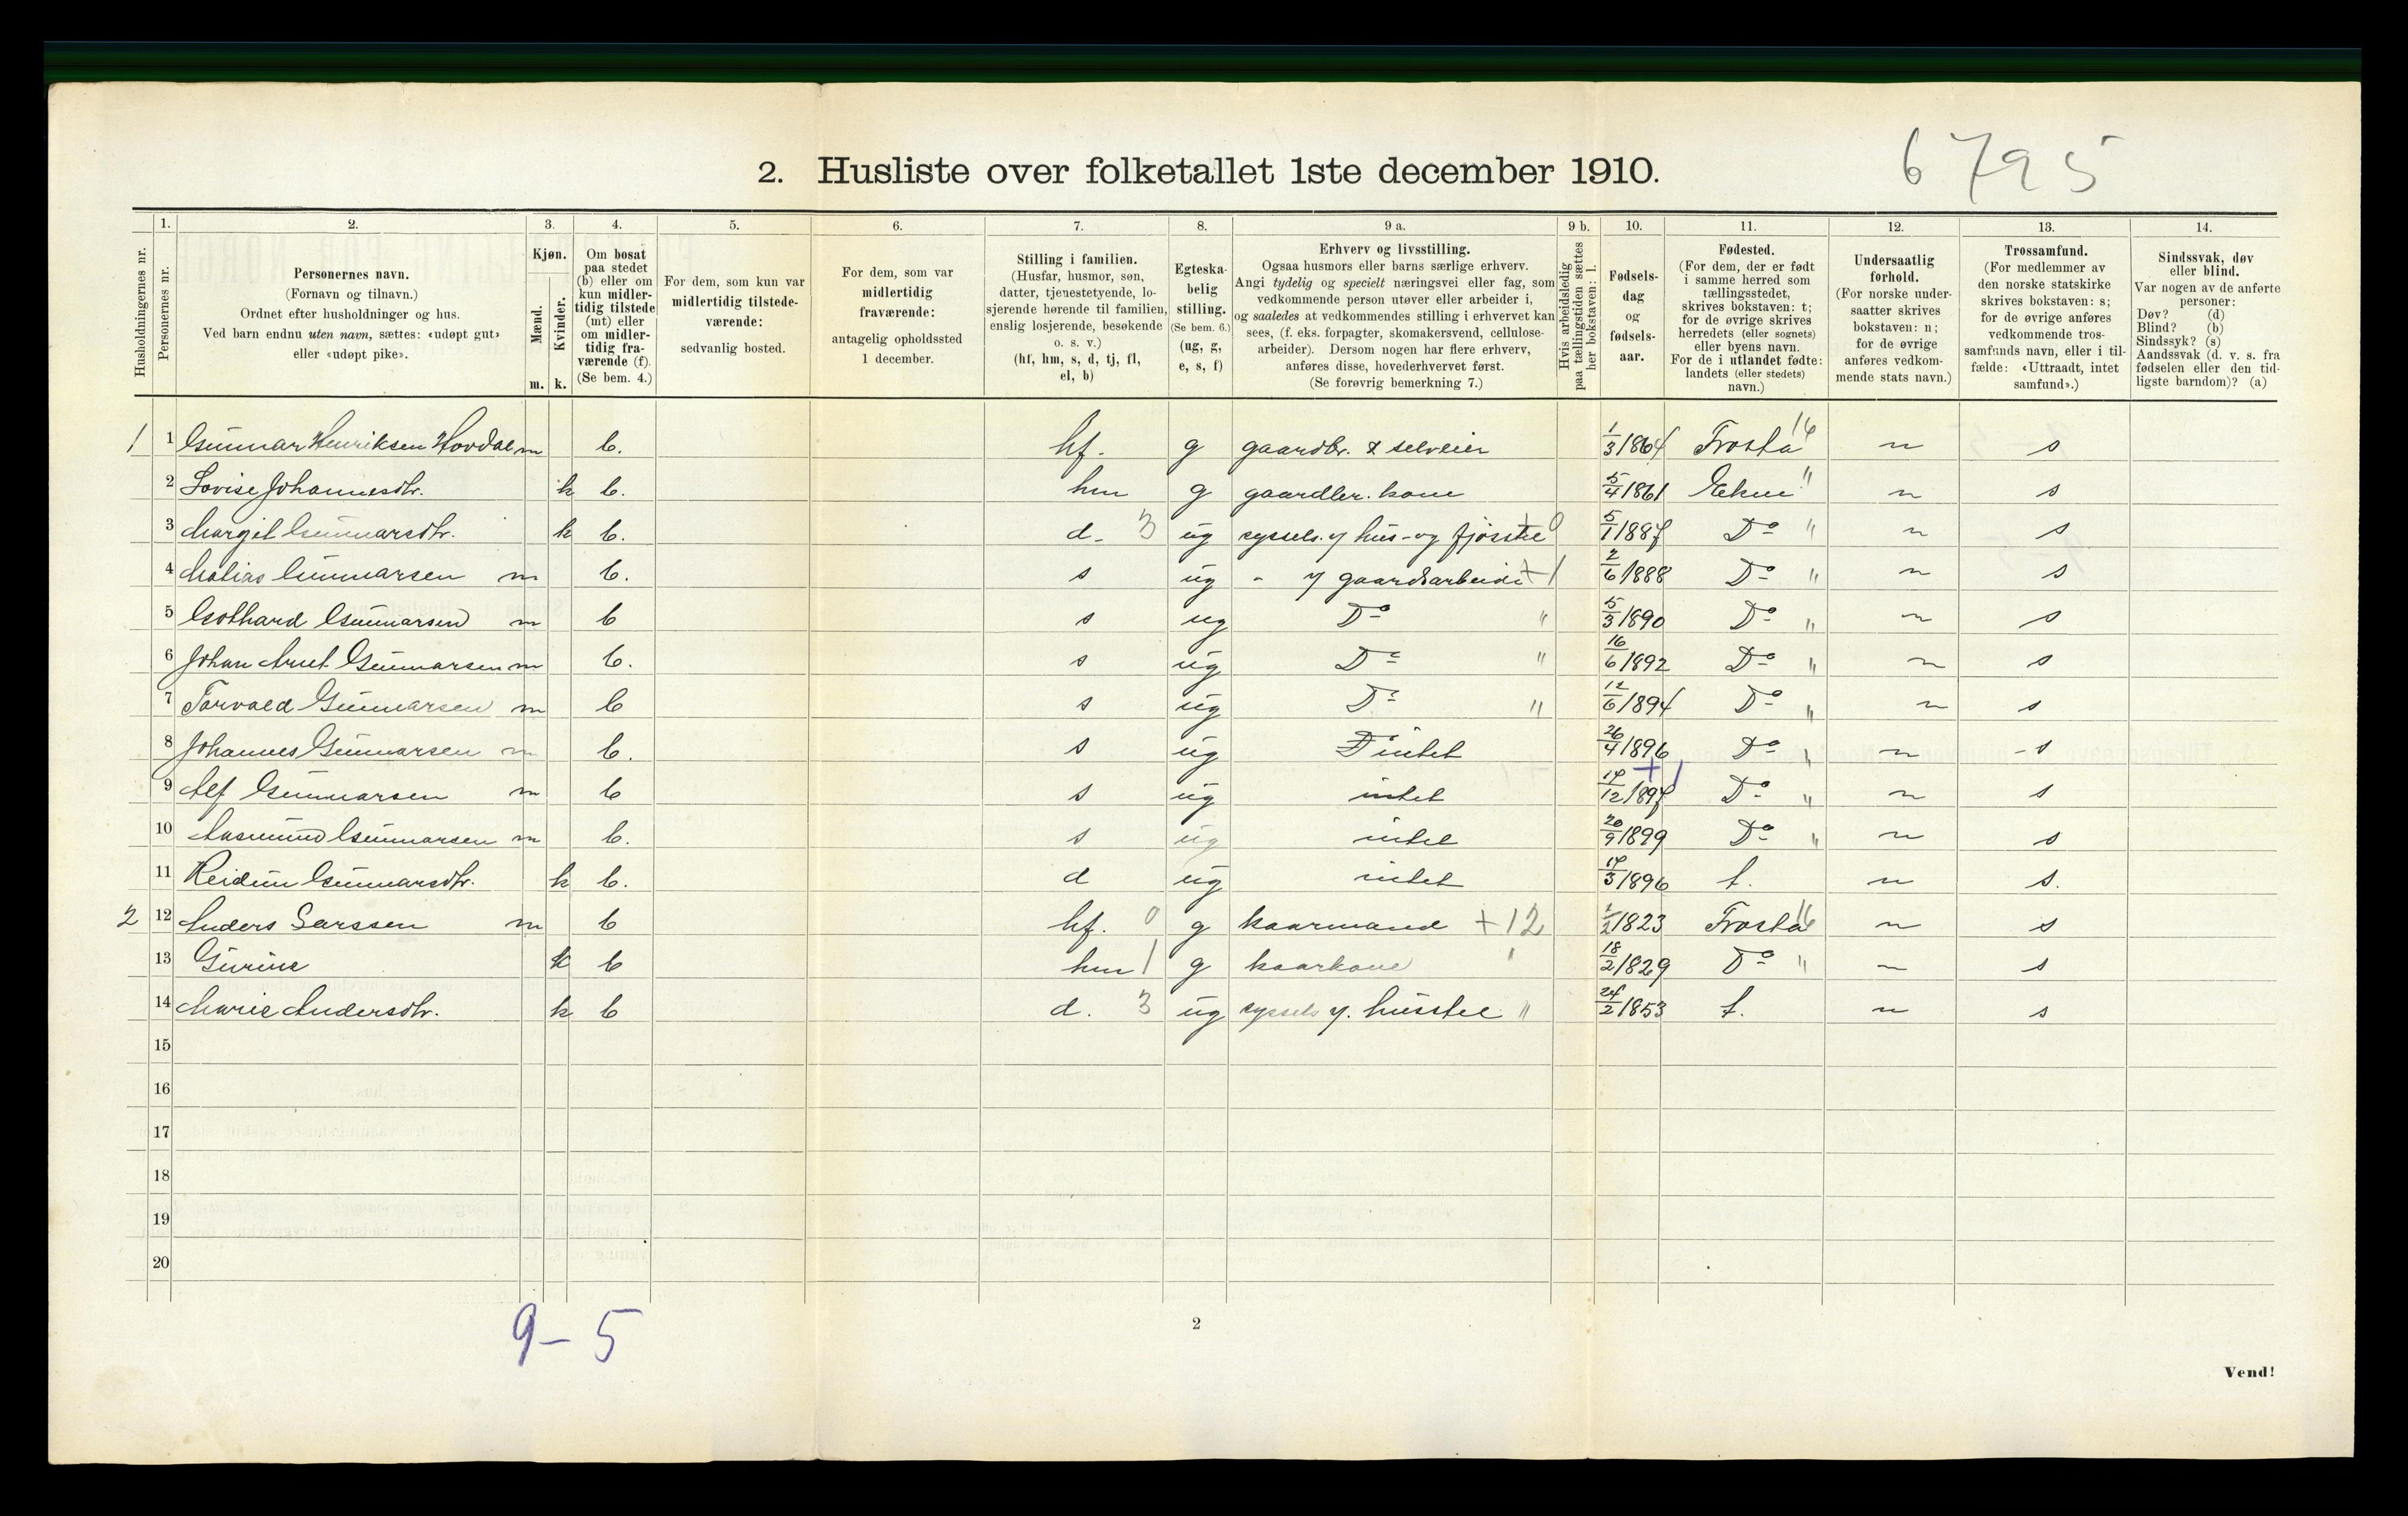 6795
2. Husliste over folketallet 1ste december 1910.
Husholdningernes nr.
1.
Personernes nr.
2.
Personernes navn.
(Fornavn og tilnavn.)
Ordnet efter husholdninger og hus.
Ved barn endnu uten navn, sættes: «udøpt gut»
eller «udøpt pike».
3.
Kjøn.
Mænd.
Kvinder.
m. k.
4.
Om bosat
paa stedet
(b) eller om
kun midler-
tidig tilstede
(mt) eller
om midler-
tidig fra-
værende (f).
(Se bem. 4.)
5.
For dem, som kun var
midlertidig tilstede-
værende:
sedvanlig bosted.
6.
For dem, som var
midlertidig
fraværende:
antagelig opholdssted
1 december.
7.
Stilling i familien.
(Husfar, husmor, søn,
datter, tjenestetyende, lo-
sjerende hørende til familien,
enslig losjerende, besøkende
o. s. v.)
(hf, hm, s, d, tj, fl,
el, b)
8.
Egteska-
belig
stilling.
(Se bem. 6.)
(ug, g,
e, s, f)
9 a.
Erhverv og livsstilling.
Ogsaa husmors eller barns særlige erhverv.
Angi tydelig og specielt næringsvei eller fag, som
vedkommende person utøver eller arbeider i,
og saaledes at vedkommendes stilling i erhvervet kan
sees, (f. eks. forpagter, skomakersvend, cellulose-
arbeider). Dersom nogen har flere erhverv,
anføres disse, hovederhvervet først.
(Se forøvrig bemerkning 7.)
9 b.
Hvis arbeidsledig
paa tællingstiden sættes
her bokstaven: l.
10.
Fødsels-
dag
og
fødsels-
aar.
11.
Fødested.
(For dem, der er født
i samme herred som
tællingsstedet,
skrives bokstaven: t;
for de øvrige skrives
herredets (eller sognets)
eller byens navn.
For de i utlandet fødte:
landets (eller stedets)
navn.)
12.
Undersaatlig
forhold.
(For norske under-
saatter skrives
bokstaven: n;
for de øvrige
anføres vedkom-
mende stats navn.)
13.
Trossamfund.
(For medlemmer av
den norske statskirke
skrives bokstaven: s;
for de øvrige anføres
vedkommende tros-
samfunds navn, eller i til-
fælde: «Uttraadt, intet
samfund».)
14.
Sindssvak, døv
eller blind.
Var nogen av de anførte
personer:
Døv? (d)
Blind? (b)
Sindssyk? (s)
Aandssvak (d. v. s. fra
fødselen eller den tid-
ligste barndom)? (a)
1 1 Gunnar Henriksen Hovdal m b. hf. g gaardbr. & selveier 1/3 1864 Frosta 16 n s
2 Lovise Johannesdtr. k b. hm g gaardbr. kone 5/4 1861 " n s
3 Margit Gunnarsdtr. k b. d- 3 ug syssels. y hus- og fjøsstel + 0 5/1 1887 Do " n s
4 Matias Gunnarsen m b. s ug " y gaardsarbeide + 1 2/6 1888 Do " n s
5 Gothard Gunnarsen m b s ug Do " 5/3 1890 Do " n s
6 Johan Arnt Gunnarsen m b. s ug Do " 16/6 1892 Do " n s
7 Torvald Gunnarsen m b s ug Do " 12/6 1894 Do " n s
8 Johannes Gunnarsen m b. s ug intet 26/4 1896 Do " n - s
9 Alf Gunnarsen m b s ug intet 14/12 1897 + 1 Do " n s
10 Aasmund Gunnarsen m b. s ug intet 20/9 1899 Do " n s
11 Reidun Gunnarsdtr. k b. d ug intet 14/3 1896 t. n s.
2 12 Anders Larssen m b hf. 0 g kaarmand + 12 1823 Frosta 16 n s
13 Gurine k b hm 1 g kaarkone " 18/2 1829 Do " n s
14 Marie Andersdtr. k b d. 3 ug syssels y. husstel " 24/2 1853 t. n s
15
16
17
18
19
20
9 - 5
2
Vend!